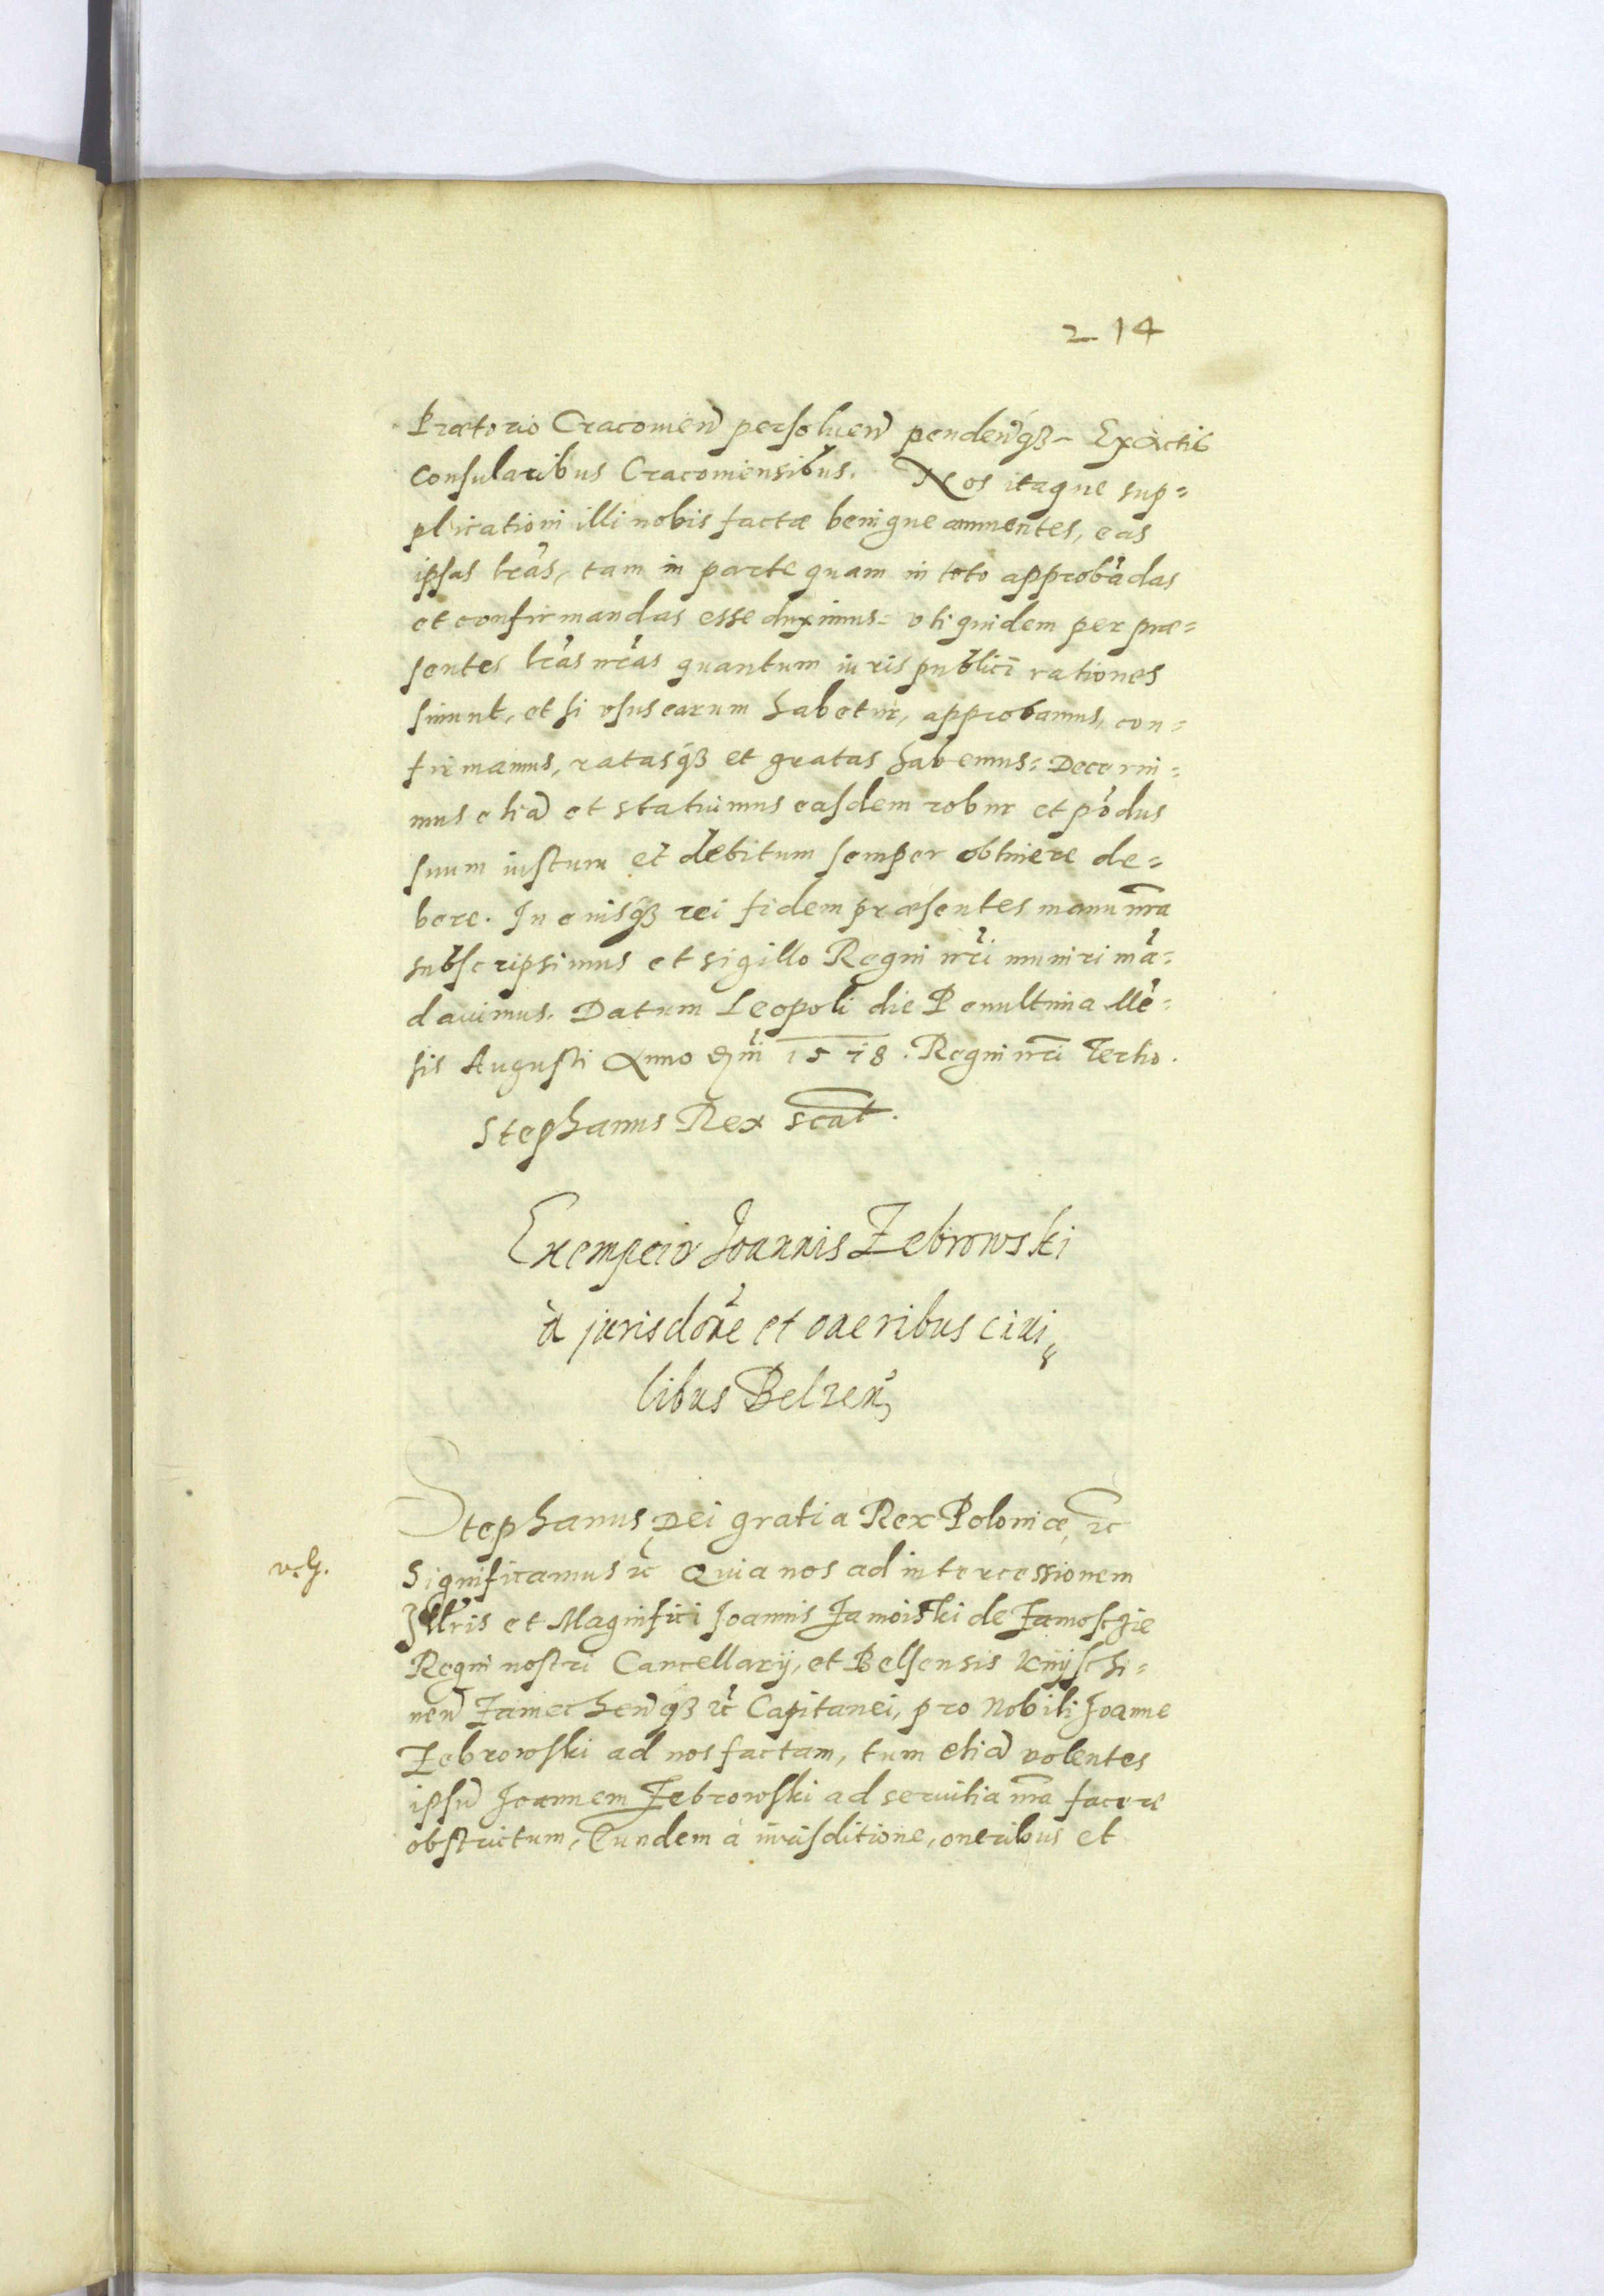 214
Prætorio Cracouien̄ persoluen̄ penden̄q₃ Exactis
Consularibus Cracouiensibus. Nos itaque sup=
plicationi illi nobis factæ benigne annuentes, eas
ipsas lr̄as, tam in parte quam in toto approbādas
et confirmandas esse duximus= vti quidem per præ=
sentes lr̄as nr̄as quantum iuris publici rationes
sinunt, et si vsus earum habetur, approbamus, con=
firmamus, ratasq₃ et gratas habemus= Decerni=
mus etiā et statuimus easdem robur et pōdus
suum iustum et debitum semper obtinere de=
bere. In cuiusq₃ rei fidem præsentes manu nr̄a
subscripsimus et sigillo Regni nr̄i muniri mā=
dauimus. Datum Leopoli die Penultima Mē=
sis Augusti Anno Dn̄i 1578. Regni nr̄i Tertio.
Stephanus Rex scat.
Exempcio Joannis Zebrowski
à jurisdōne et oneribus ciui=
libus Belzen̄
Stephanus Dei gratia Rex Poloniæ, ꝛc
v.g.
Significamus ꝛc Quia nos ad intercessionem
Jllr̄is et Magnifici Joannis Zamoiski de Zamosczie
Regni nostri Cancellarij, et Belsensis Knijschi=
nen̄ Zamechen̄q₃ ꝛc Capitanei, pro Nobili Joanne
Zebrowski ad nos factam, tum etiā volentes
ipsū Joannem Zebrowski ad seruitia nr̄a facere
obstrictum, Eundem à iurisditione, oneribus et